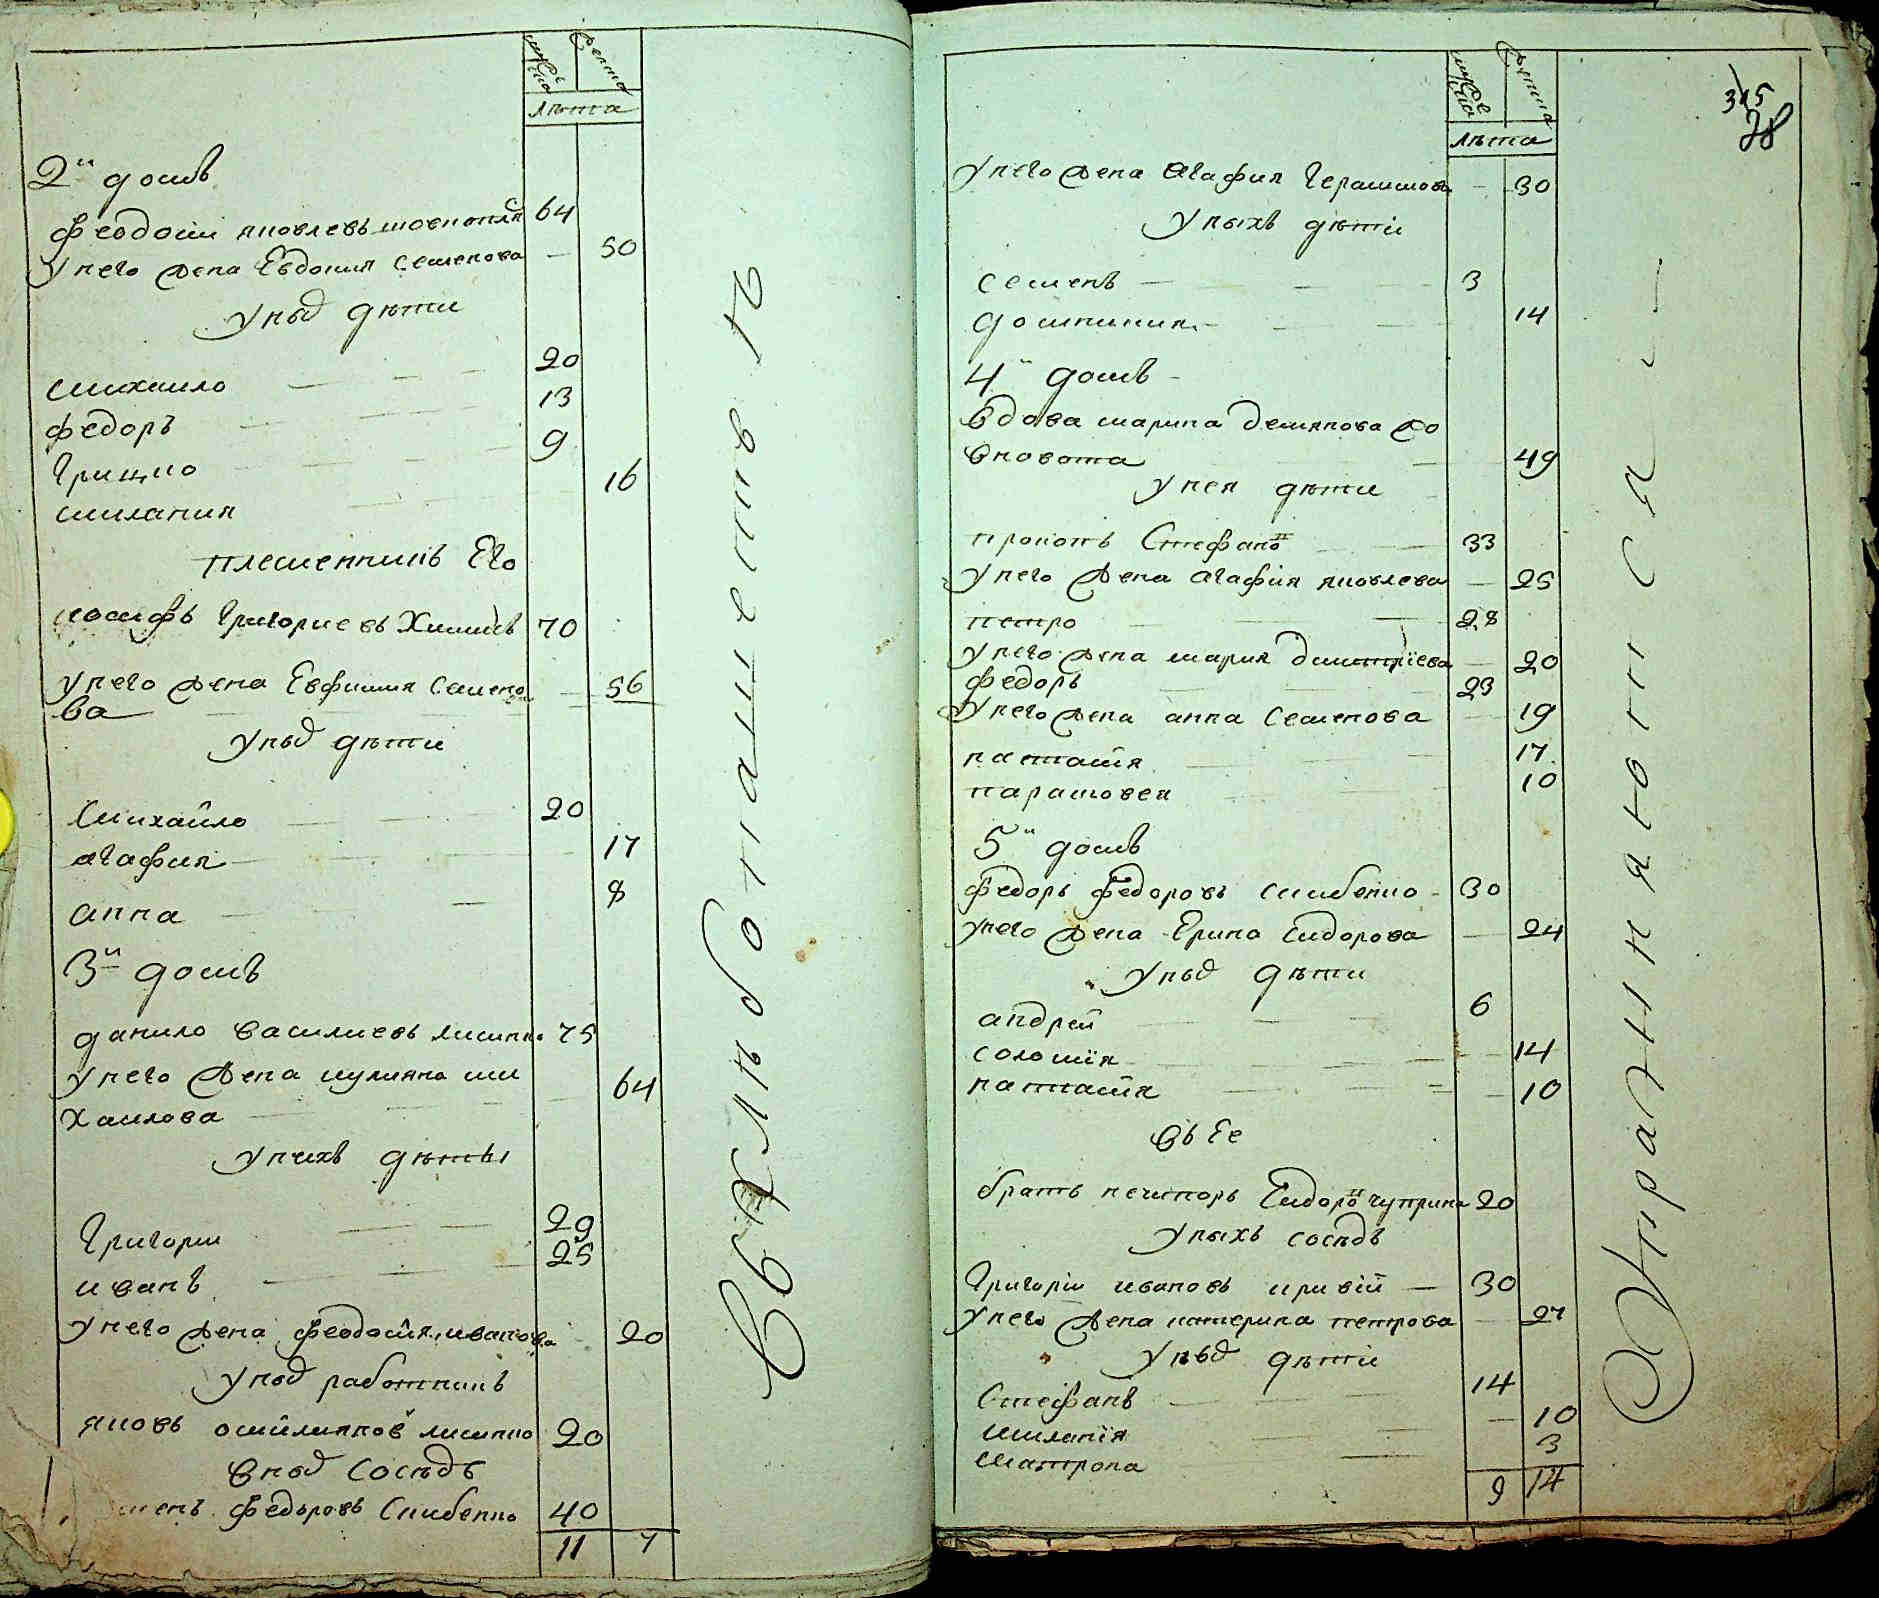 мужеска
женска
лѣта
2й домъ
Феодосий яковлевъ 64
У него жена Евдокия Семенова — 50
У нихъ дѣти
Михаило 20
Федоръ 13
Грицко 9
Милания 16
племенникъ Его
Иосифъ Григориевъ 70
У него жена Евфимия Семено 56
ва
У нихъ дѣти
Михайло 20
Агафия 17
Анна 8
3й домъ
данило Василиевъ 75
У него жена иулияна ми 64
хаилова
У нихъ дѣты
Григорий 29
иванъ 25
У него жена Феодосия иванова 20
У нихъ работникъ
яковъ 20
В нихъ Сосѣдъ
Федоровъ Скибенко 40
11 7
315
38
лѣта
У него жена Агафия Герасимова — 30
У ныхъ дѣти
Семенъ 3
домникия 14
4й домъ
Вдова марина Демянова
49
У нея дѣти
прокопъ Стефановъ 33
У него жена агафия яковлева — 25
петро 28
У него жена мария Димитрïева — 20
федоръ 23
У него жена анна Семенова — 19
настасïя 17
парасковея 10
5й домъ
Федоръ Федоровъ Скибенко 30
У него жена Ерина Сидорова — 24
У нихъ дѣти
андрей 6
соломïя 14
настасïя 10
Въ Ее
братъ нечипоръ Сидоровъ чуприна 20
У ныхъ сосѣдъ
Григорïй ивановъ кривïй — 30
У него жена катерина петрова — 27
У нихъ дѣти
Стефанъ 14
Миланïя — 10
Матрона 3
9 14